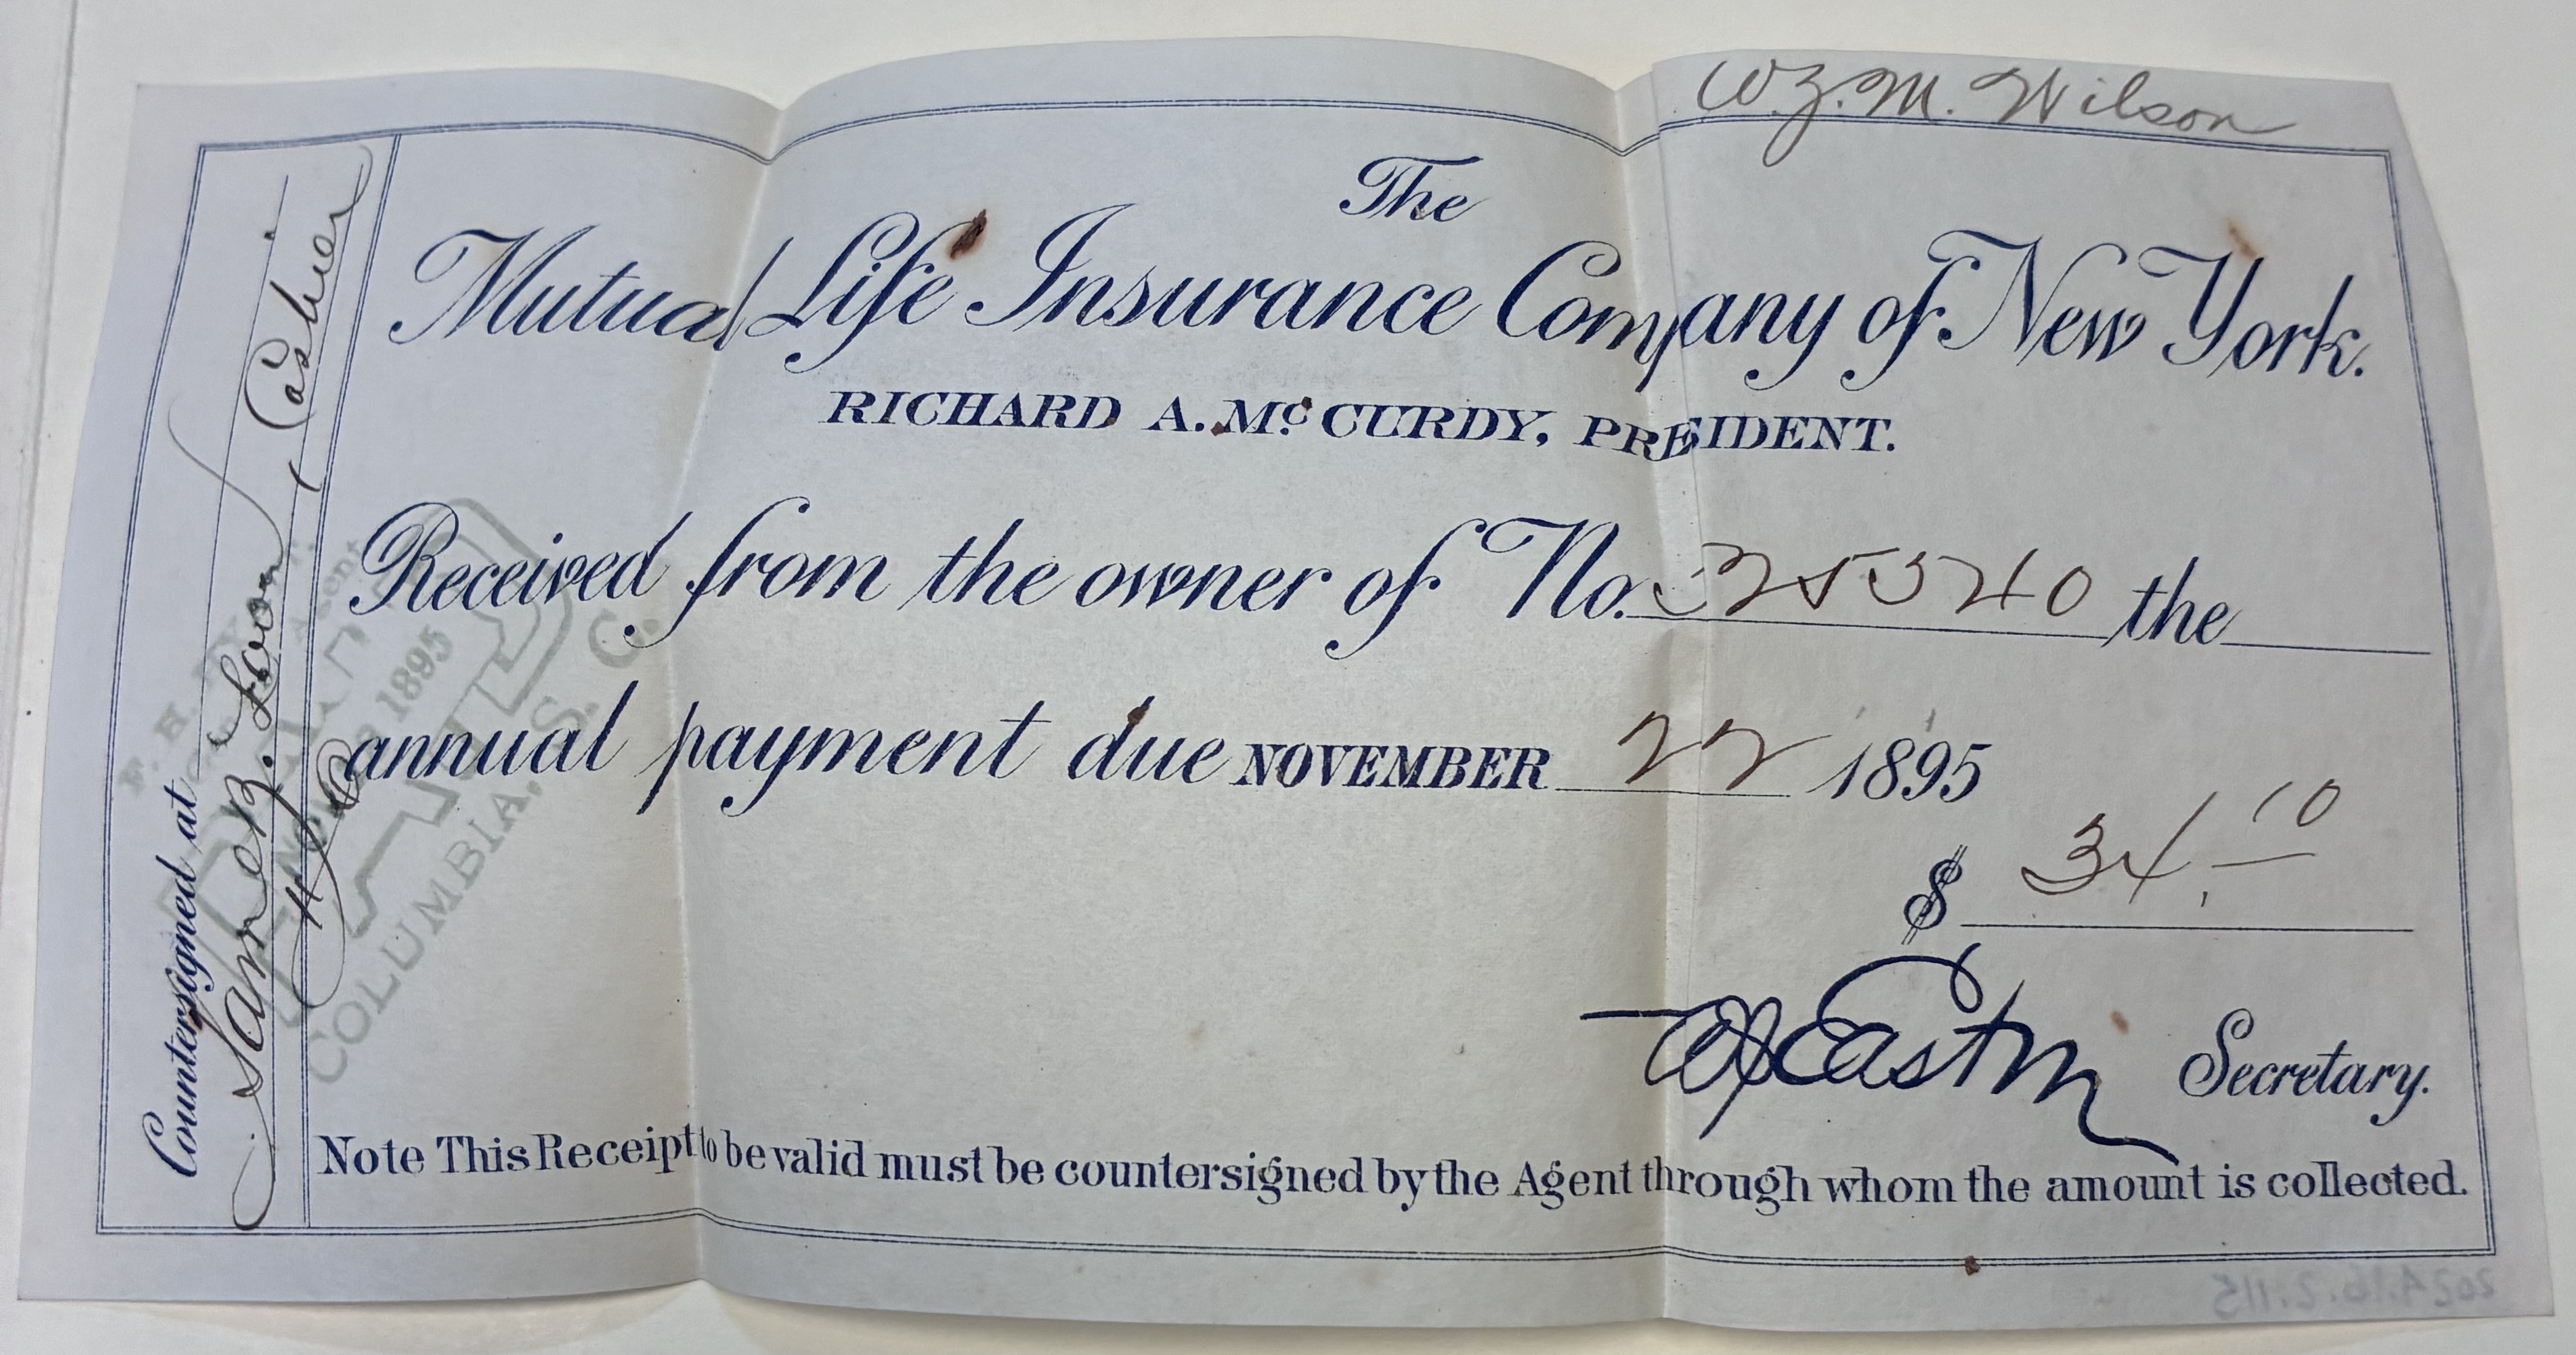 W.Z.M. Wilson
The
Mutual Life Insurance Company of New York.
RICHARD A. McCURDY, PRESIDENT.
Received from the owner of No. 325540 the
annual payment due NOVEMBER 22 1895
$ 34.10
Secretary.
Note This Receipt to be valid must be countersigned by the Agent through whom the amount is collected.
Countersigned at
Cashier
F. H.
Agent
PAID
1895
COLUMBIA, S. C.
2024.16.2.115